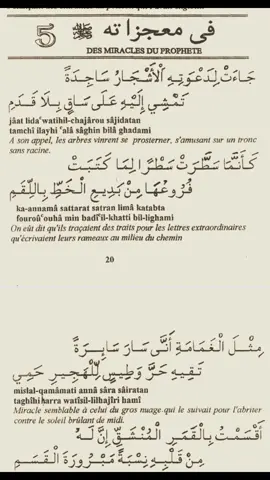 5 في معجزاته ﷺ
DES MIRACLES DU PROPHETE
جَاءَتْ لِدَعْوَتِهِ الْأَشْجَارُ سَاجِدَةً
تَمْشِي إِلَيْهِ عَلَى سَاقٍ بِلَا قَدَمِ
jâat lida'watihil-chajârou sâjidatan
tamchî ilayhi 'alâ sâghin bilâ ghadami
A son appel, les arbres vinrent se prosterner, s'amusant sur un tronc
sans racine.
كَأَنَّمَا سَطَرَتْ سَطْرًا لِمَا كَتَبَتْ
فُرُوعُهَا مِنْ بَدِيعِ الْخَطِّ بِاللَّقَمِ
ka-annamâ sattarat satran limâ katabta
fouroû'ouhâ min badî'il-khatti bil-lighami
On eût dit qu'ils traçaient des traits pour les lettres extraordinaires
qu'écrivaient leurs rameaux au milieu du chemin
20
مِثْلَ الْغَمَامَةِ أَنَّى سَارَ سَائِرَةً
تَقِيهِ حَرَّ وَطِيسٍ لِلْهَجِيرِ حَمِي
mislal-qamâmati annâ sâra sâiratan
taghîhi harra watîsil-lilhajîri hamî
Miracle semblable à celui du gros nuage qui le suivait pour l'abriter
contre le soleil brûlant de midi.
أَقْسَمْتُ بِالْقَمَرِ الْمُنْشَقِّ إِنَّ لَهُ
مِنْ قَلْبِهِ نِسْبَةً مَبْرُورَةَ الْقَسَمِ